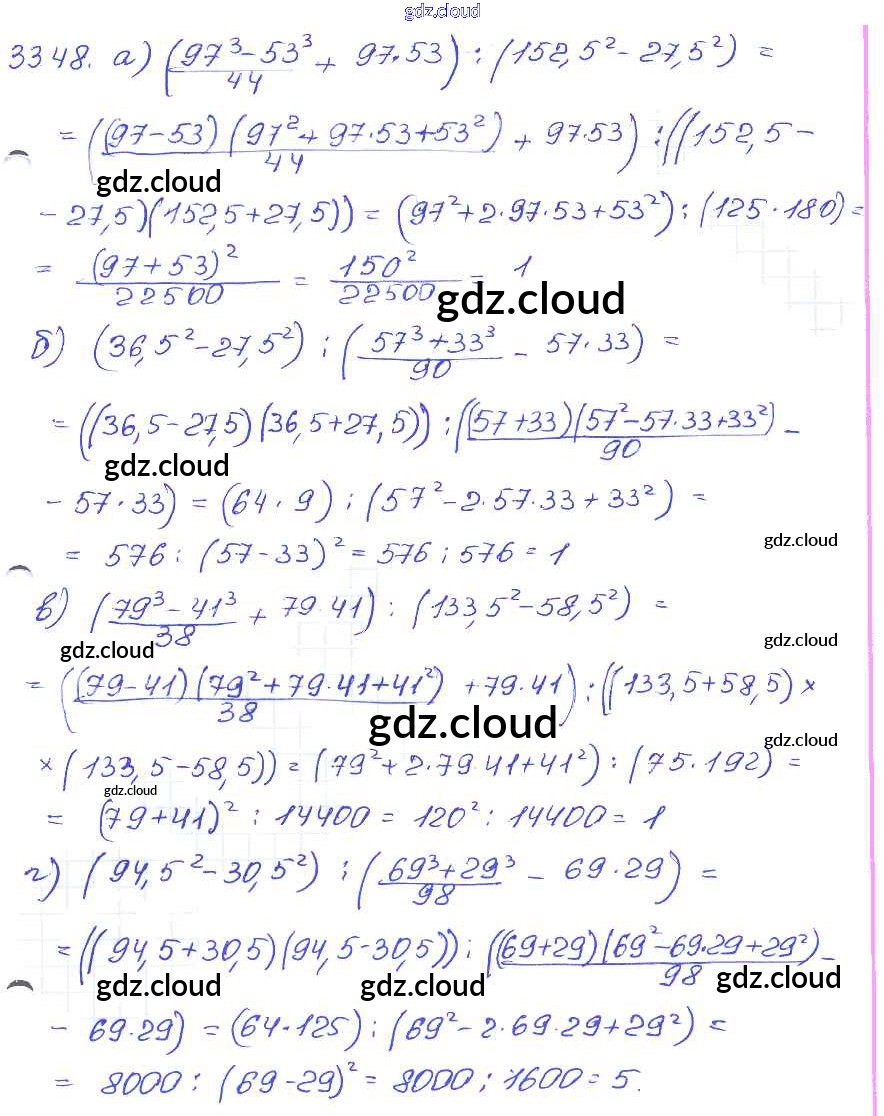 gdz.cloud
3348. а) ((97³-53³)/44 + 97·53) : (152,5² - 27,5²) =
= ((97-53)(97²+97·53+53²)/44 + 97·53) : ((152,5-
gdz.cloud
- 27,5)(152,5+27,5)) = (97²+2·97·53+53²) : (125·180) =
= (97+53)²/22500 = 150²/22500 = 1
gdz.cloud
б) (36,5²-27,5²) : ((57³+33³)/90 - 57·33) =
= ((36,5-27,5)(36,5+27,5)) : ((57+33)(57²-57·33+33²)/90 -
gdz.cloud
- 57·33) = (64·9) : (57²-2·57·33+33²) =
gdz.cloud
= 576 : (57-33)² = 576 : 576 = 1
в) ((79³-41³)/38 + 79·41) : (133,5²-58,5²) =
gdz.cloud
gdz.cloud
= ((79-41)(79²+79·41+41²)/38 + 79·41) : ((133,5+58,5)×
gdz.cloud
gdz.cloud
×(133,5-58,5)) = (79²+2·79·41+41²) : (75·192) =
gdz.cloud
= (79+41)² : 14400 = 120² : 14400 = 1
г) (94,5²-30,5²) : ((69³+29³)/98 - 69·29) =
= ((94,5+30,5)(94,5-30,5)) : ((69+29)(69²-69·29+29²)/98 -
gdz.cloud
gdz.cloud
gdz.cloud
- 69·29) = (64·125) : (69²-2·69·29+29²) =
= 8000 : (69-29)² = 8000 : 1600 = 5.